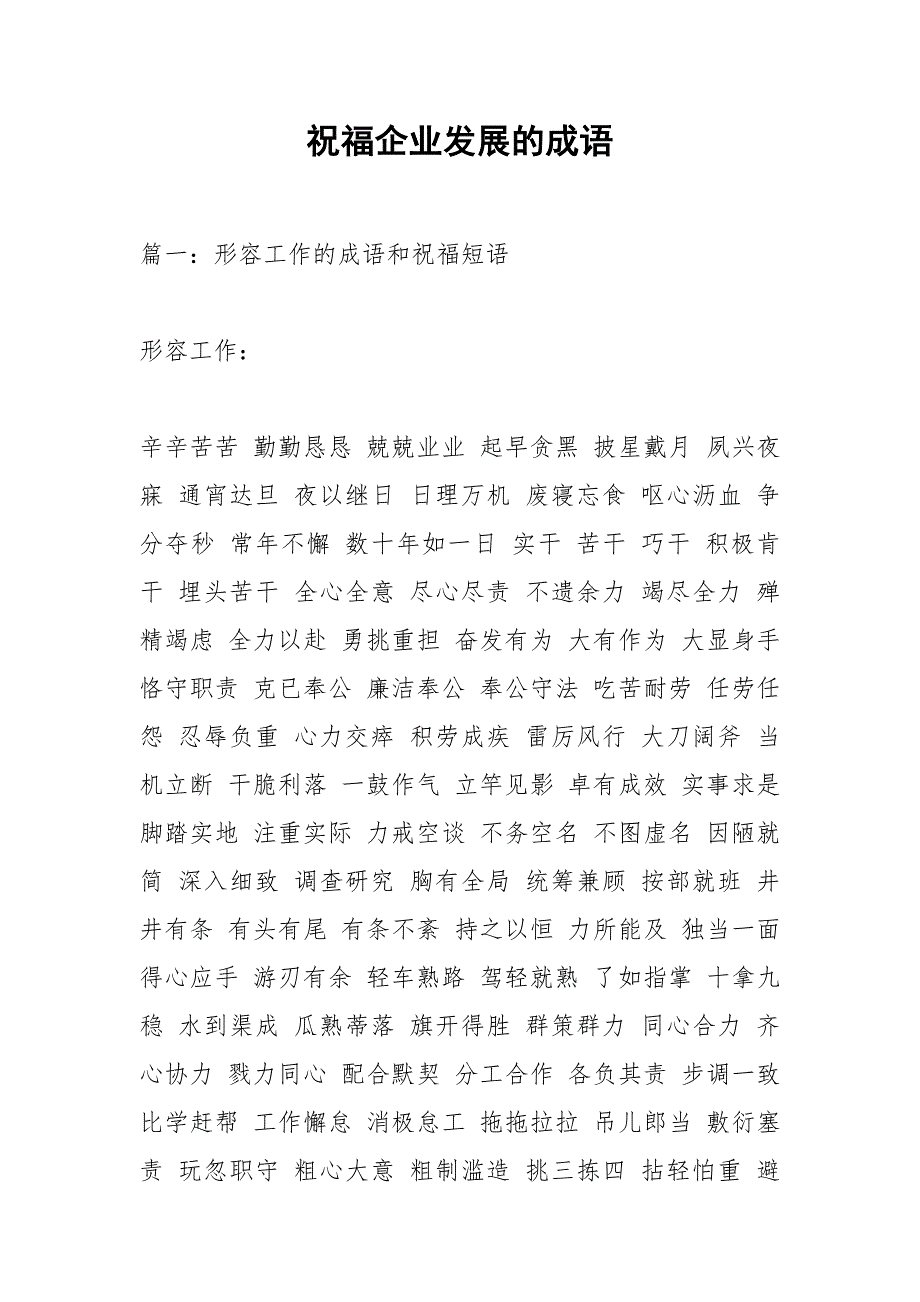 祝福企业发展的成语
篇一：形容工作的成语和祝福短语
形容工作：
辛辛苦苦 勤勤恳恳 兢兢业业 起早贪黑 披星戴月 夙兴夜
寐 通宵达旦 夜以继日 日理万机 废寝忘食 呕心沥血 争
分夺秒 常年不懈 数十年如一日 实干 苦干 巧干 积极肯
干 埋头苦干 全心全意 尽心尽责 不遗余力 竭尽全力 殚
精竭虑 全力以赴 勇挑重担 奋发有为 大有作为 大显身手
恪守职责 克已奉公 廉洁奉公 奉公守法 吃苦耐劳 任劳任
怨 忍辱负重 心力交瘁 积劳成疾 雷厉风行 大刀阔斧 当
机立断 干脆利落 一鼓作气 立竿见影 卓有成效 实事求是
脚踏实地 注重实际 力戒空谈 不务空名 不图虚名 因陋就
简 深入细致 调查研究 胸有全局 统筹兼顾 按部就班 井
井有条 有头有尾 有条不紊 持之以恒 力所能及 独当一面
得心应手 游刃有余 轻车熟路 驾轻就熟 了如指掌 十拿九
稳 水到渠成 瓜熟蒂落 旗开得胜 群策群力 同心合力 齐
心协力 戮力同心 配合默契 分工合作 各负其责 步调一致
比学赶帮 工作懈怠 消极怠工 拖拖拉拉 吊儿郎当 敷衍塞
责 玩忽职守 粗心大意 粗制滥造 挑三拣四 拈轻怕重 避